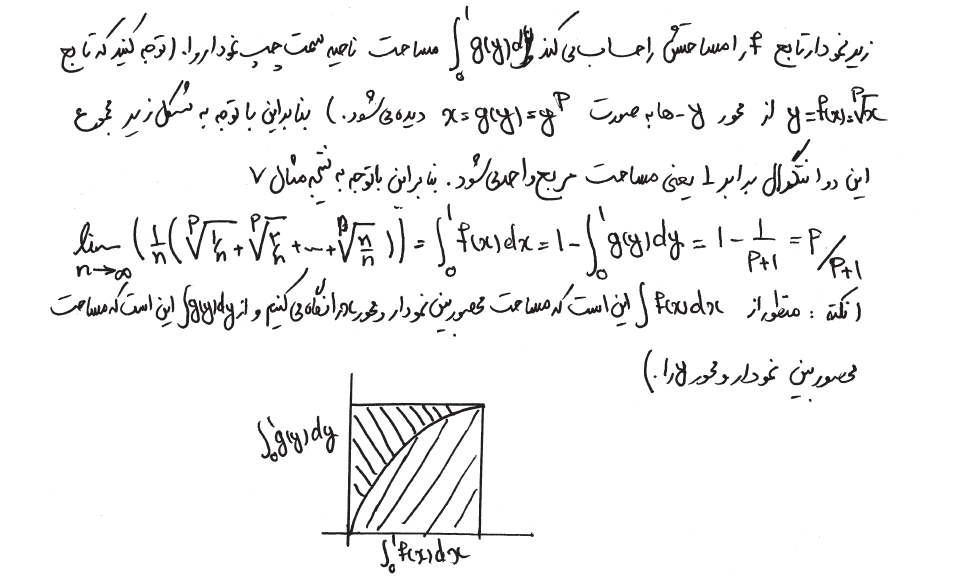 زیر نمودار تابع f را مساحتش را حساب می‌کند ∫₀¹ g(y)dy مساحت ناحیه سمت چپ نمودار را. (توجه کنید که تابع
y=f(x)=ᵖ√x از محور y-ها به صورت x=g(y)=yᵖ دیده می‌شود.) بنابراین با توجه به شکل زیر مجموع
این دو انتگرال برابر 1 یعنی مساحت مربع واحد می‌شود. بنابراین باتوجه به نتیجه مثال ۷
lim n→∞ (1/n(ᵖ√(1/n) + ᵖ√(2/n) + ... + ᵖ√(n/n))) = ∫₀¹ f(x)dx = 1 - ∫₀¹ g(y)dy = 1 - 1/(p+1) = p/(p+1)
(نکته: منظور از ∫f(x)dx این است که مساحت محصور بین نمودار و محور x را نگاه می‌کنیم و از ∫g(y)dy این است که مساحت
محصور بین نمودار و محور y را.)
∫₀¹ g(y)dy
∫₀¹ f(x)dx